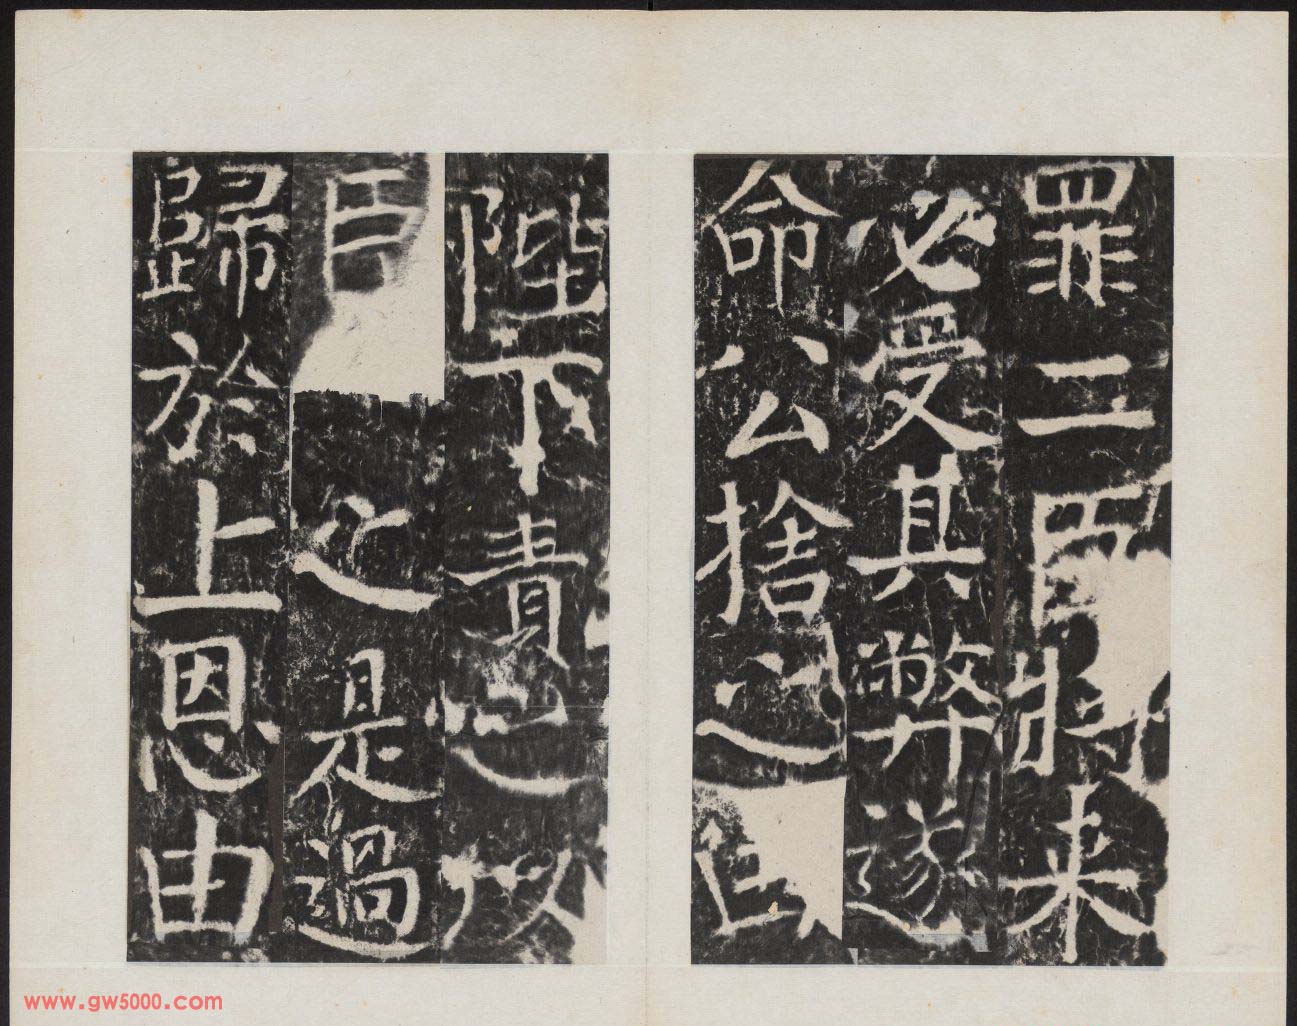 罪二臣將来
必受其弊遂
命公捨之
陛下責之以
臣之是過
歸於上恩由
www.gw5000.com